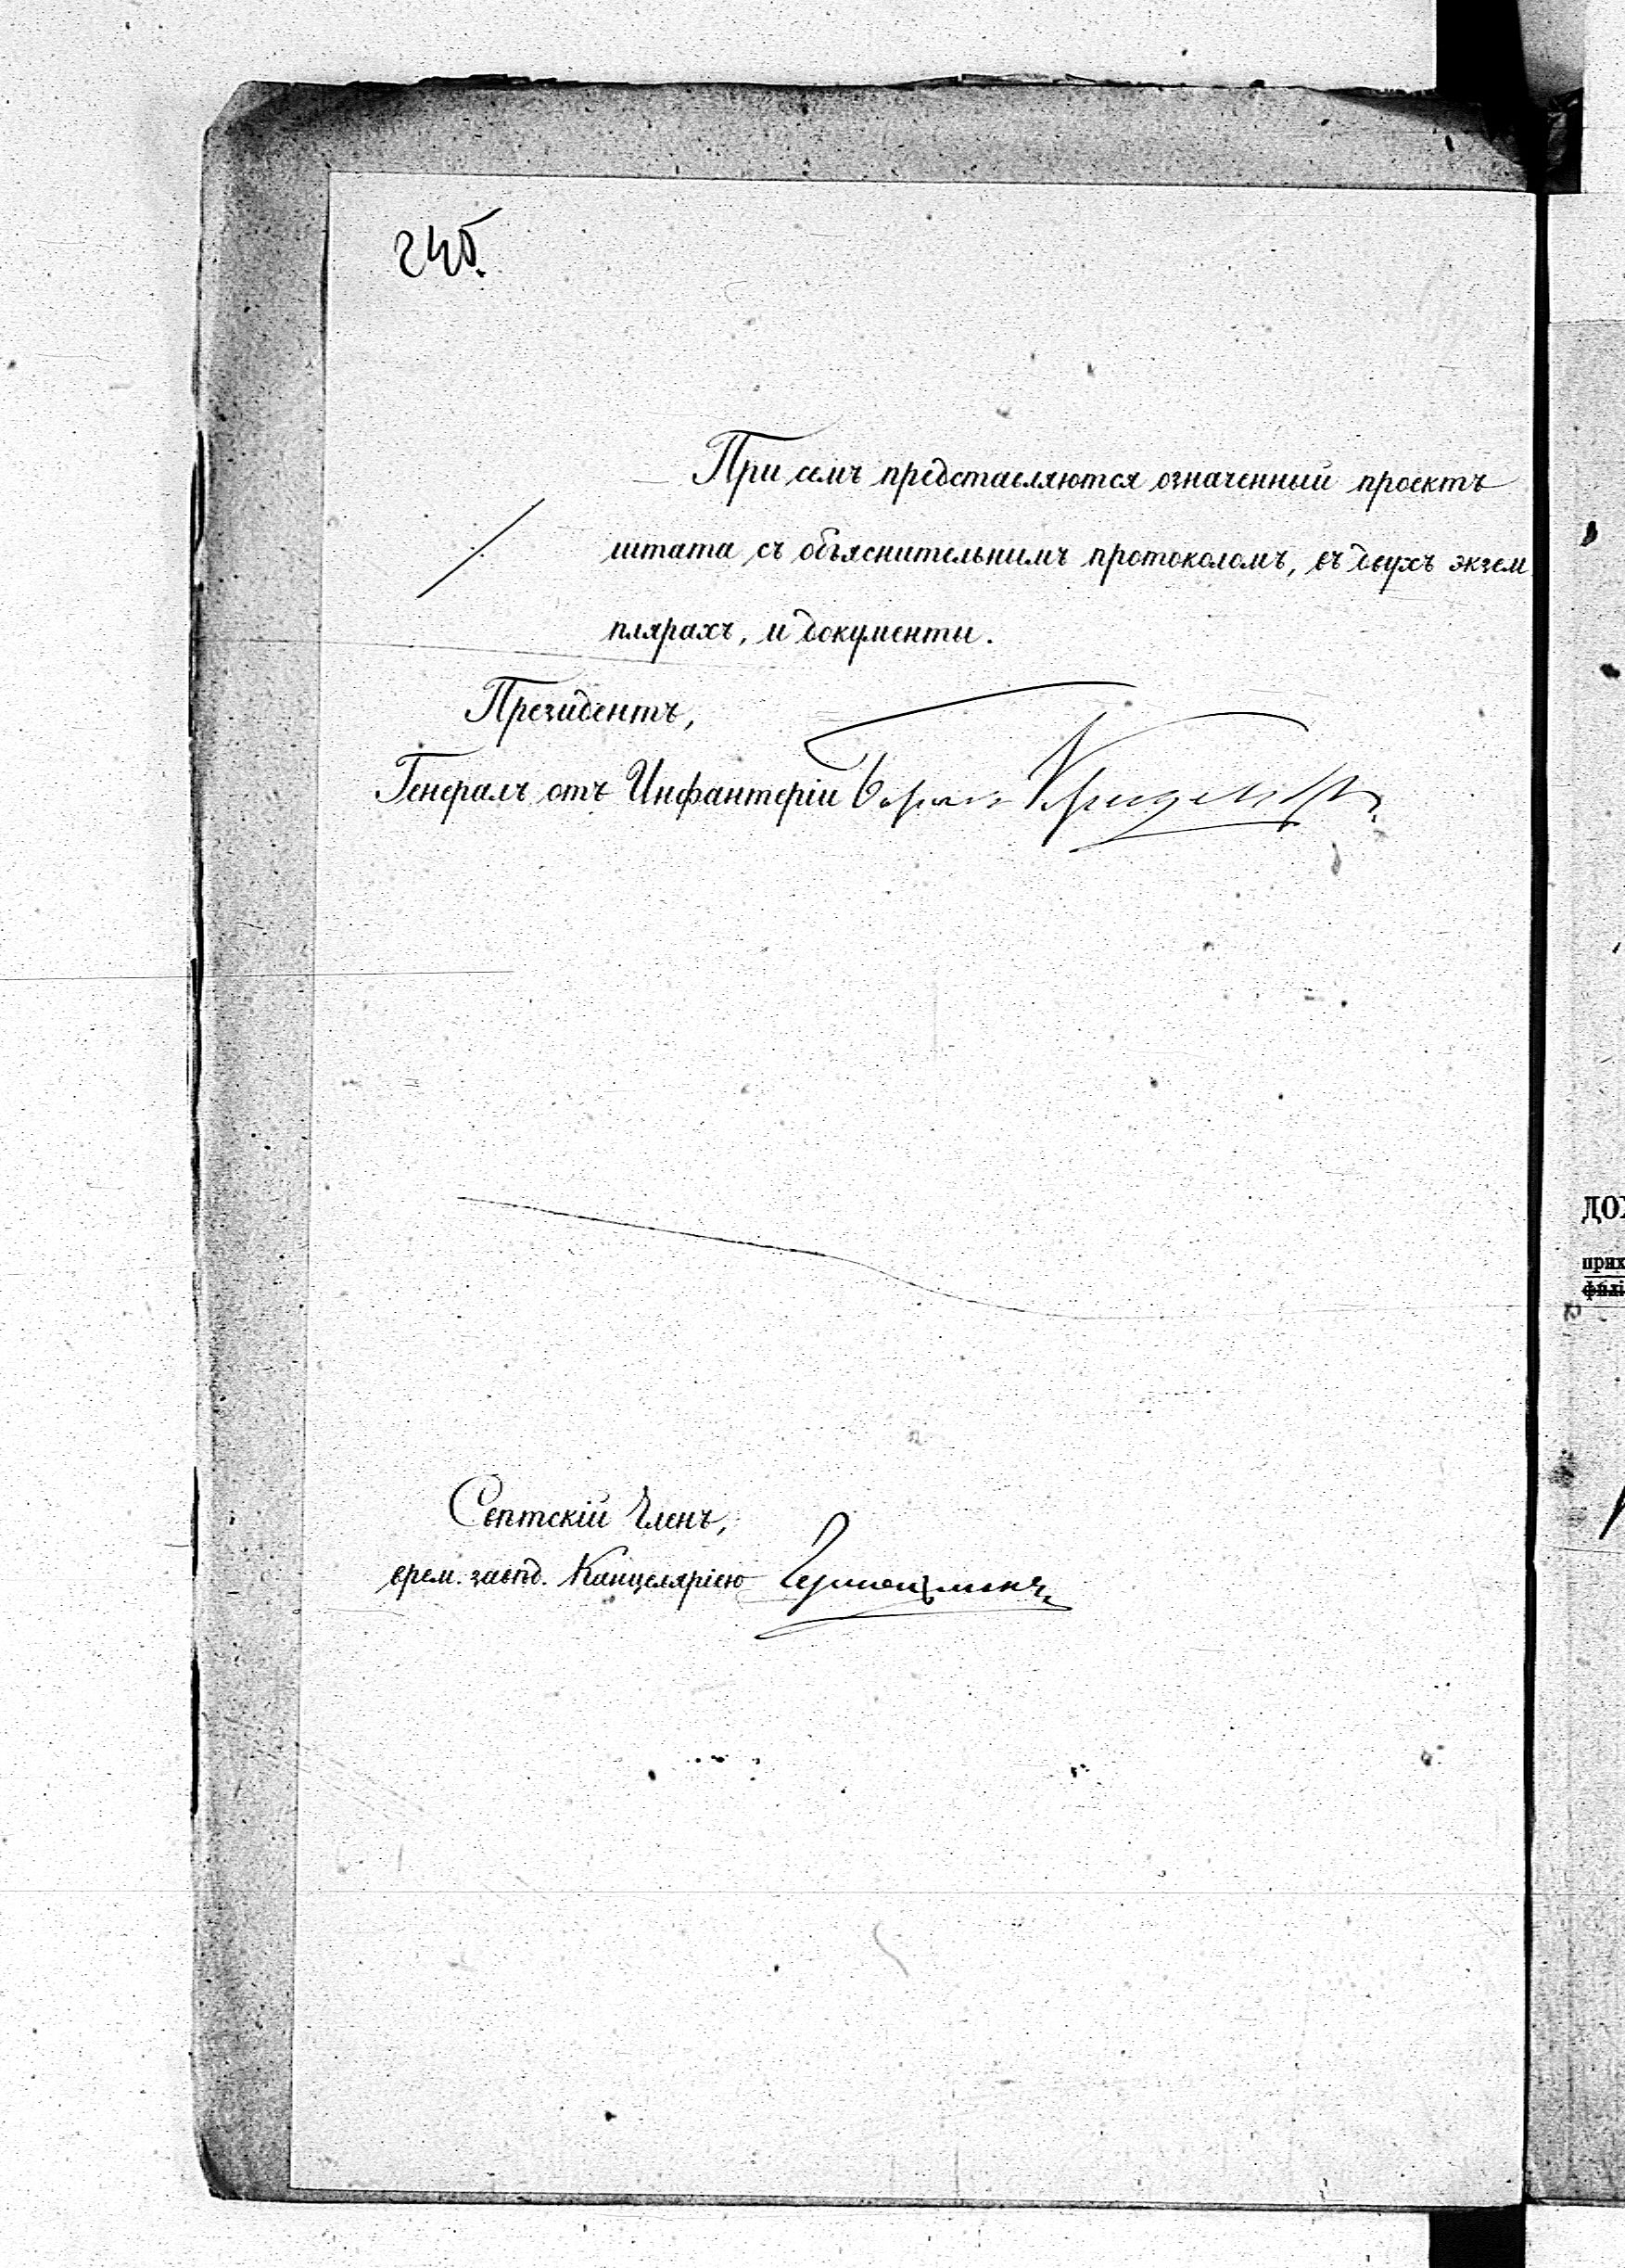 245.
При семъ представляются означенный проектъ
штата съ объяснительнымъ протоколомъ, въ двухъ экзем
плярахъ, и документы.
Президентъ,
Генералъ отъ Инфантеріи Баронъ Криденеръ
Свѣтскій Членъ,
врем. завѣд. Канцеляріею
ДО
прих
філі